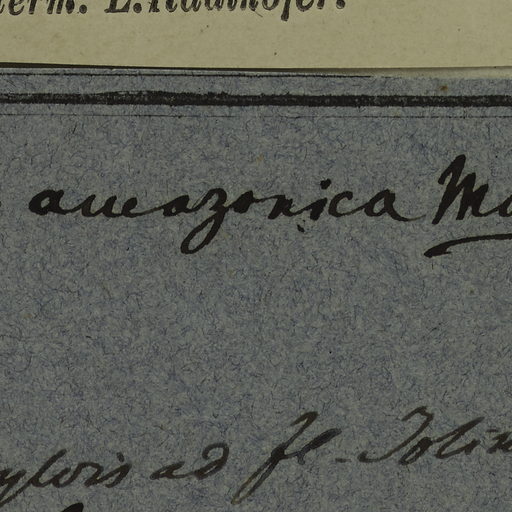 term. L. Radlkofer.
amazonica Ma
sylvis ad fl. Solim